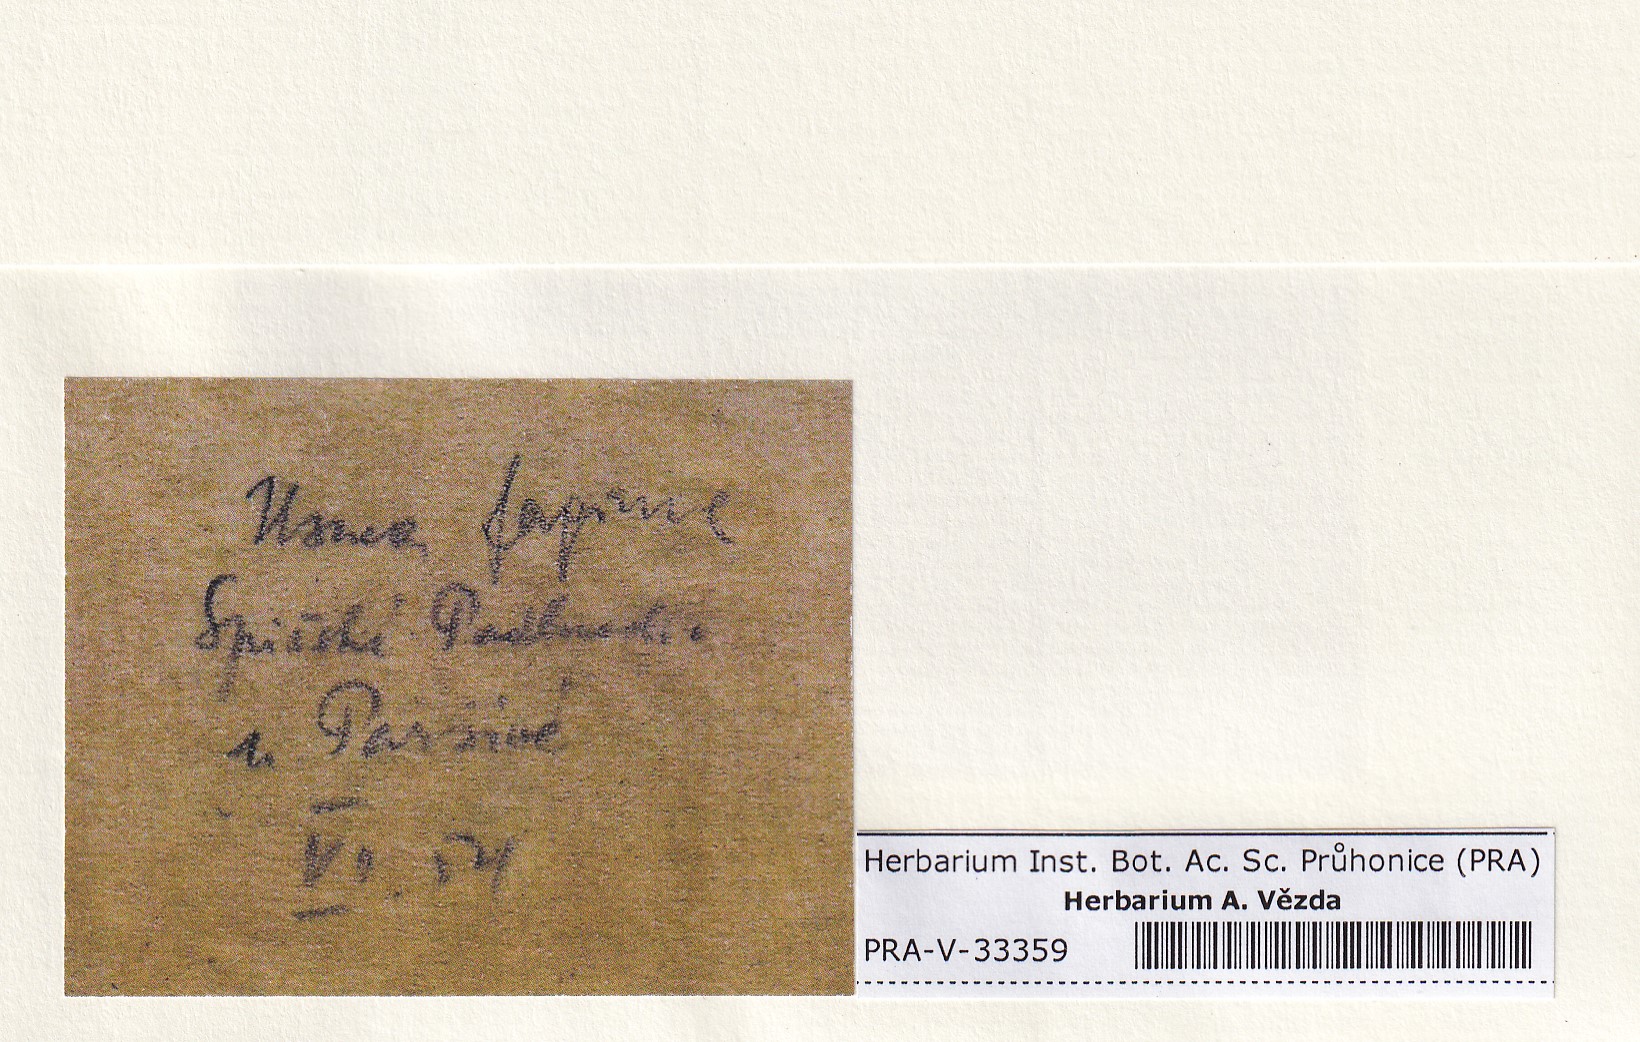 Usnea fagine
Spišské Podhradie
u Paršivé
VI. 54
Herbarium Inst. Bot. Ac. Sc. Průhonice (PRA)
Herbarium A. Vězda
PRA-V-33359